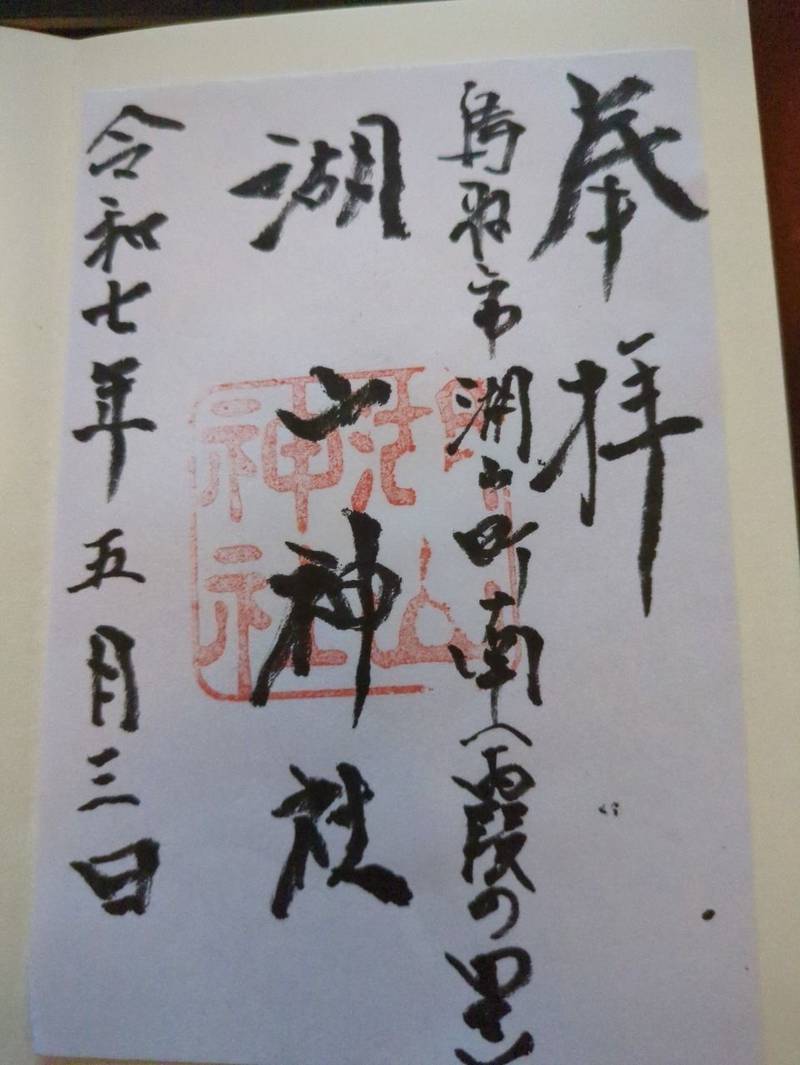 奉拝
鳥取市湖山町南(霞の里)
湖山神社
令和七年五月三日
湖山
神社